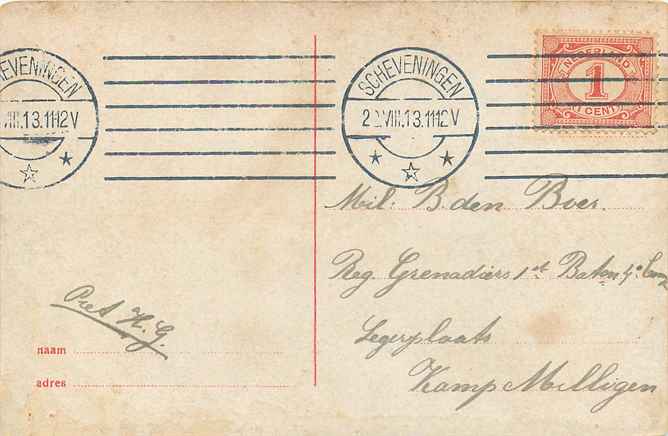 SCHEVENINGEN
VIII.13.1112V
SCHEVENINGEN
VIII.13.1112V
NEDERLAND
1
CENT
Mil: B. den Boer.
Reg. Grenadiers 1st Baton 4e Comp
Legerplaats
Kamp Milligen
Piet H. G.
naam
adres